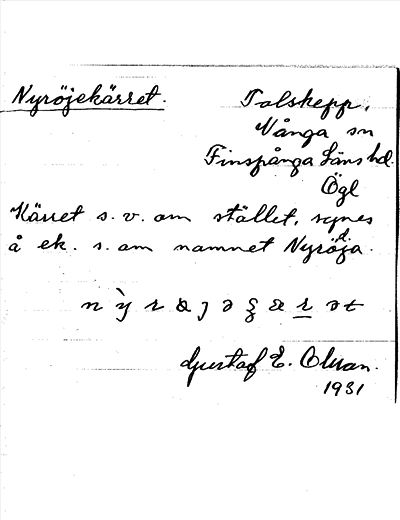 Nyröjekärret.
Tolskepp,
Vånga sn
Finspånga Läns hd.
Ögl
Kärret s. v. om stället, synes
å ek. s. om namnet Nyröja.
Gustaf E. Olsson.
1931